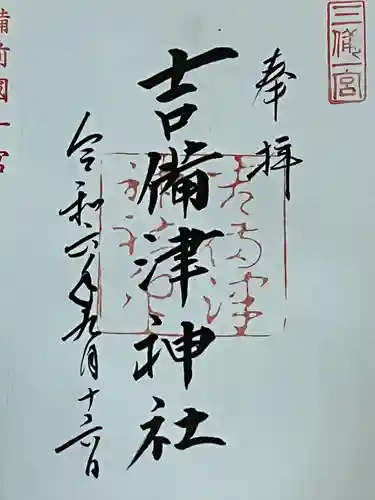 三備一宮
奉拝
吉備津神社
令和六年九月十六日
備前國一宮